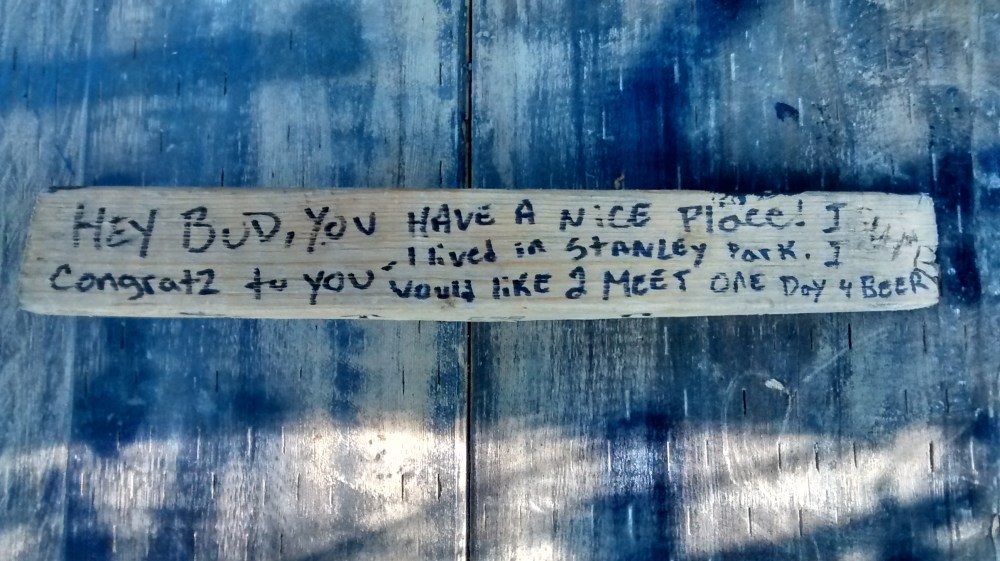 HEY BUD, YOU HAVE A NiCE Place! I
I lived in StANLEY Park. I
Congrat2 to YOU would liKE 2 MEET ONE Day 4 BEER